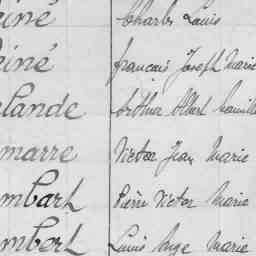 iné Charles Louis
iné François Joseph Marie
lande Arthur Albert
marre Victor Jean Marie
mbart Pierre Victor Marie
mbert Louis Ange Marie